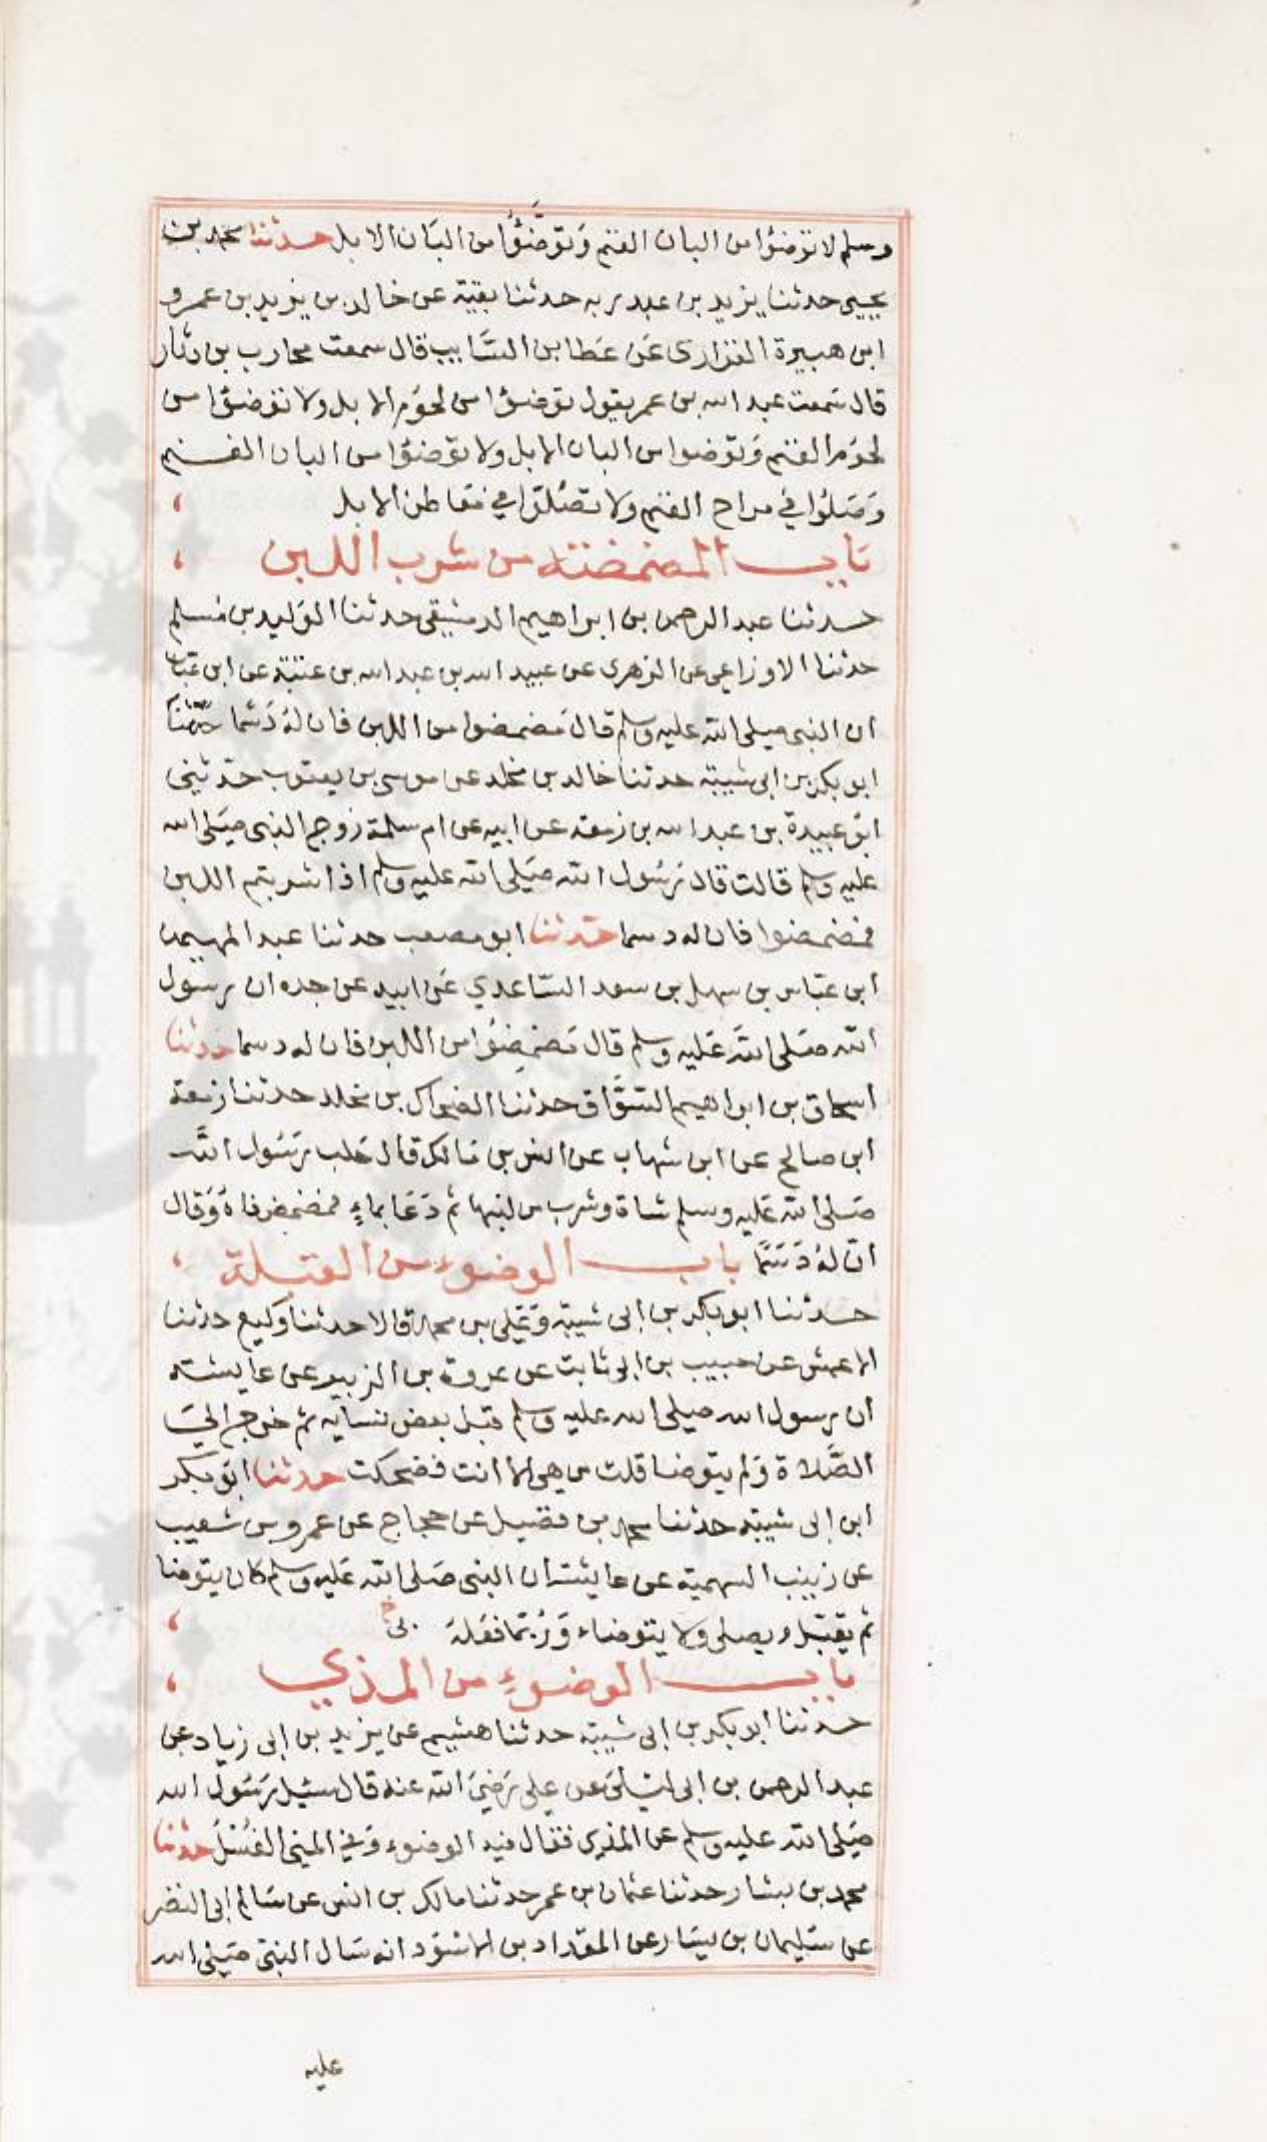 وسلم لا توضئوا من البان الغنم وَتوَضَّئوُا من البَان الابل حدثنا محمد بن
يحيى حدثنا يزيد بن عبد ربه حدثنا بقية عن خالد بن يزيد بن عمرو
ابن هبيرة الفزارى عَن عَطا بن السَّايب قال سمعت محارب بن دثار
قال سَمعت عبد الله بن عمر يقول توَضئوا من لحوُم الابل ولا توَضئوا من
لحوُم الغنم وَتوَضوا من البان الابل ولا توَضئوا من البان الغنم
وَصَلوُا في مراح الغنم ولا تصَلوا في مَعاطن الابل
بَاب المضمضة من شرب اللبن
حدثنا عبد الرحمن بن ابراهيم الدمشقي حدثنا الوَليد بن مُسلم
حدثنا الاوزاعي عن الزهرى عن عبيد الله بن عبد الله بن عتبة عن ابن عَباس
ان النبى صلى الله عليه وسلم قال مَضمضوا من اللبن فان لهُ دَسما حدثنا
ابو بكر بن ابى شيبة حدثنا خالد بن مخلد عن موسى بن يعقوب حَدثنى
ابوَ عبيدة بن عبد الله بن زمعة عن ابيه عن ام سلمة زوج النبى صَلى الله
عليه وسلم قالت قال رَسُول الله صَلى الله عليه وسلم اذا شربتم اللبن
فمضمضوا فان له دسما حَدثنا ابو مصعب حدثنا عبد المهيمن
ابن عبَاس بن سهل بن سعد السَّاعدي عَن ابيه عن جده ان رسول
الله صَلى الله عَليه وسلم قال مَضمِضوُا من اللبن فان له دسما حَدثنا
اسحاق بن ابراهيم السَّوَّاق حدثنا الضحاك بن مخلد حدثنا زمعة
ابن صالح عن ابن شهاب عن انس بن مَالك قال حَلب رَسُول الله
صَلى الله عَليه وسلم شاة وشرب من لبنها ثم دَعَا بماءٍ فمضمض فاهُ وَقال
انّ لهُ دَسَمًا باب الوضوء من القبلة
حدثنا ابو بكر بن ابى شيبة وَعَلى بن محمد قالا حدثنا وَكيع حدثنا
الاعمش عن حبيب بن ابى ثابت عن عروة بن الزبير عن عايشة
ان رسول الله صلى الله عليه وسلم قبل بعض نسايه ثم خرج الىَ
الصَّلاة وَلم يتوضا قلت من هى الا انت فضحكت حدثنا ابوَ بكر
ابن ابى شيبة حدثنا محمد بن فضيل عن حجاج عن عمرو بن شعيب
عن زينب السهمية عن عايشة ان النبى صَلى الله عَليه وسلم كان يتوضا
ثم يقبّل ويصلى ولا يتوضاء وَرُبمَا فعَلهَ بى
باب الوضوءِ من المذي
حدثنا ابو بكر بن ابى شيبة حدثنا هشيم عن يزيد بن ابى زياد عن
عبد الرحمن بن ابى ليَلىَ عن على رَضىَ الله عنه قال سئيل رَسُول الله
صَلى الله عليه وسلم عن المذى فقال فيه الوضوء وَفي المنى الغُسْلُ حدثنا
محمد بن بشار حدثنا عثمان بن عمر حدثنا مالك بن انس عن سَالم ابى النضر
عن سَليمان بن يسَار عن المقداد بن الاسَود انه سَال النبىَ صَلى الله
عليه